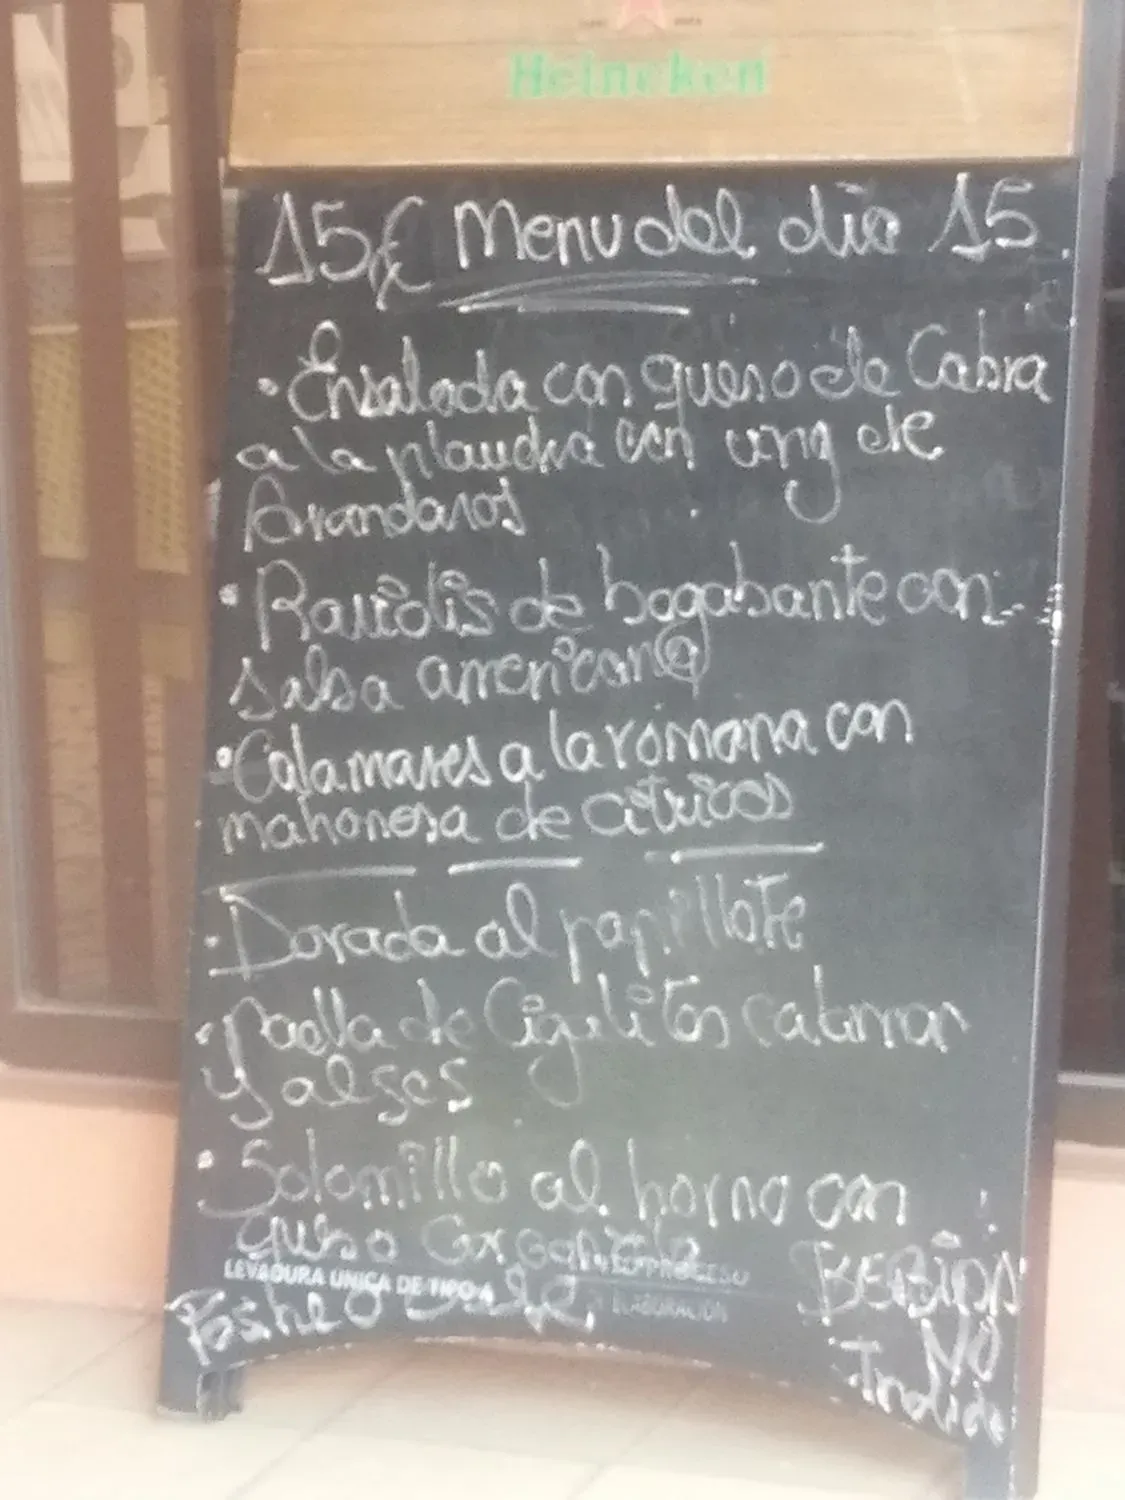 Heineken
15€ Menu del dia 15
• Ensalada con queso de Cabra
a la plancha con ving de
Arandanos
• Raviolis de bogabante con
salsa american@
• Calamares a la romana con
mahonesa de citricos
• Dorada al papillote
• Paella de Cigalitos calamar
y alges
• Solomillo al horno con
queso Gorgonzola
LEVADURA UNICA DE TIPO A
PROCESO
ELABORACIÓN
Postre o Cafe
BEBIDA
NO
Inclida